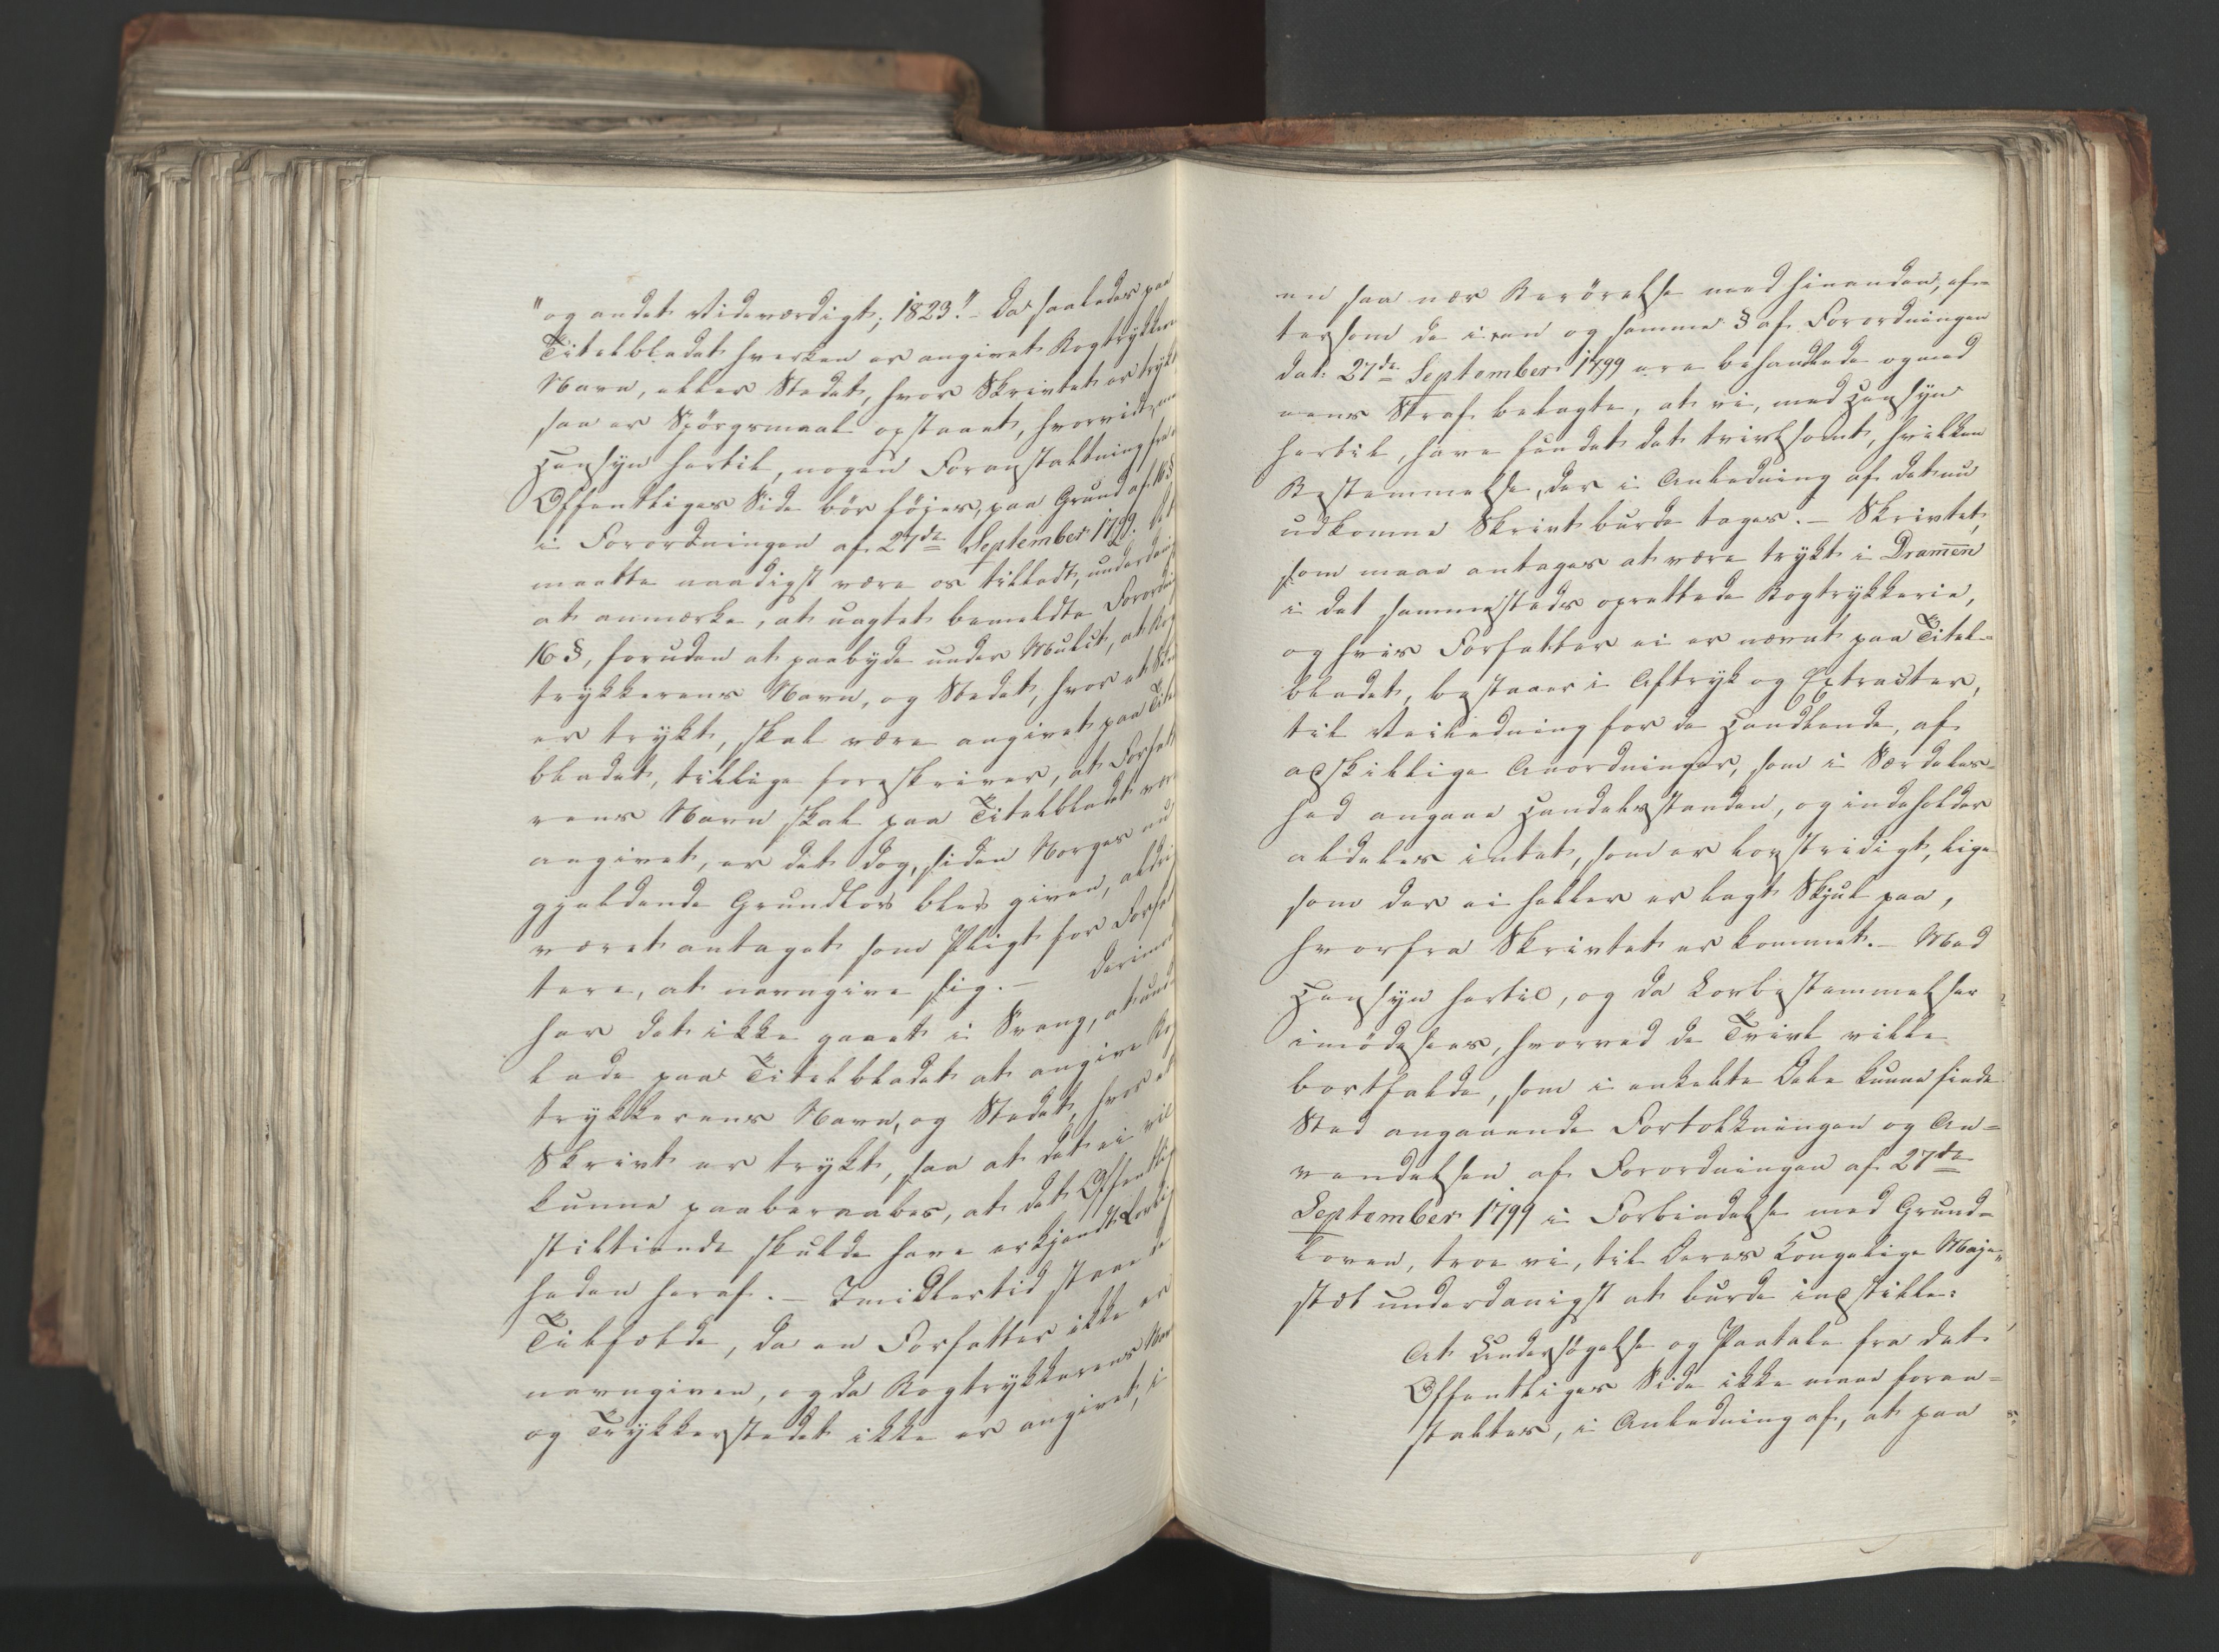 "og andet Videværdigt; 1823." – Da saaledes paa
Titelbladet hverken er angivet Bogtrykkere
Navn, eller Stedet, hvor Skrivtet er trykt
saa er Spörgsmaal opstaaet, hvorvidt, m
Hensyn hertil, nogen Foranstaltning fra
Offentliges Side bör föies, paa Grund af 16 §
i Forordningen af 27de September 1799. Det
maatte naadigst være os tilladt, underdanig
at anmærke, at uagtet bemeldte Forordni
16 §, foruden at paabyde under Mulct, at Bog
trykkerens Navn, og Stedet, hvor et Skr
er trykt, skal være angivet paa Titel
bladet, tillige foreskriver, at Forfat
rens Navn skal paa Titelbladet være
angivet, er det dog, siden Norges nu
gjeldende Grundlov blev given, aldri
været antaget som Pligt for Forfat
tere, at navngive sig. – Derimod
har det ikke gaaet i Svang, at und
lade paa Titelbladet at angive Bog
trykkerens Navn, og Stedet, hvor et
Skrivt er trykt, saa at det ei vil
kunne paaberaabes, at det Offentlig
stiltiende skulde have erkjendt Lovlig
heden heraf. – Imidlertid staae de
Tilfælde, da en Forfatter ikke er
navngiven, og da Bogtrykkerens Nav
og Trykkestedet ikke er angivet, i
en saa nær Berörelse med hinanden, ef=
tersom de i een og samme § af Forordningen
dat: 27de September 1799 ere behandlede og med
eens Straf belagte, at vi, med Hensyn
hertil, have fundet det tvivlsomt, hvilken
Bestemmelse, der i Anledning af det nu
udkomne Skrivt burde tages. – Skrivtet,
som maae antages at være trykt i Dram̅en
i det sammesteds oprettede Bogtrykkerie,
og hvis Forfatter ei er nævnt paa Titel=
bladet, bestaaer i Aftryk og Extracter,
til Veiledning for de Handlende, af
adskillige Anordninger, som i Særdeles=
hed angaae Handelsstanden, og indeholder
aldeles intet, som er lovstridigt, lige
som der ei heller er lagt Skjul paa,
hvorfra Skrivtet er kommet. – Med
Hensyn hertil, og da Lovbestemmelser
imödesees, hvorved de Tvivl ville
bortfalde, som i enkelte Dele kunne finde
Sted angaaende Fortolkningen og An=
vendelsen af Forordningen af 27de
September 1799 i Forbindelse med Grund=
loven, troe vi, til Deres Kongelige Maje=
stæt underdanigst at burde indstille:
At Undersögelse og Paatale fra det
Offentliges Side ikke maae foran=
staltes, i Anledning af, at paa